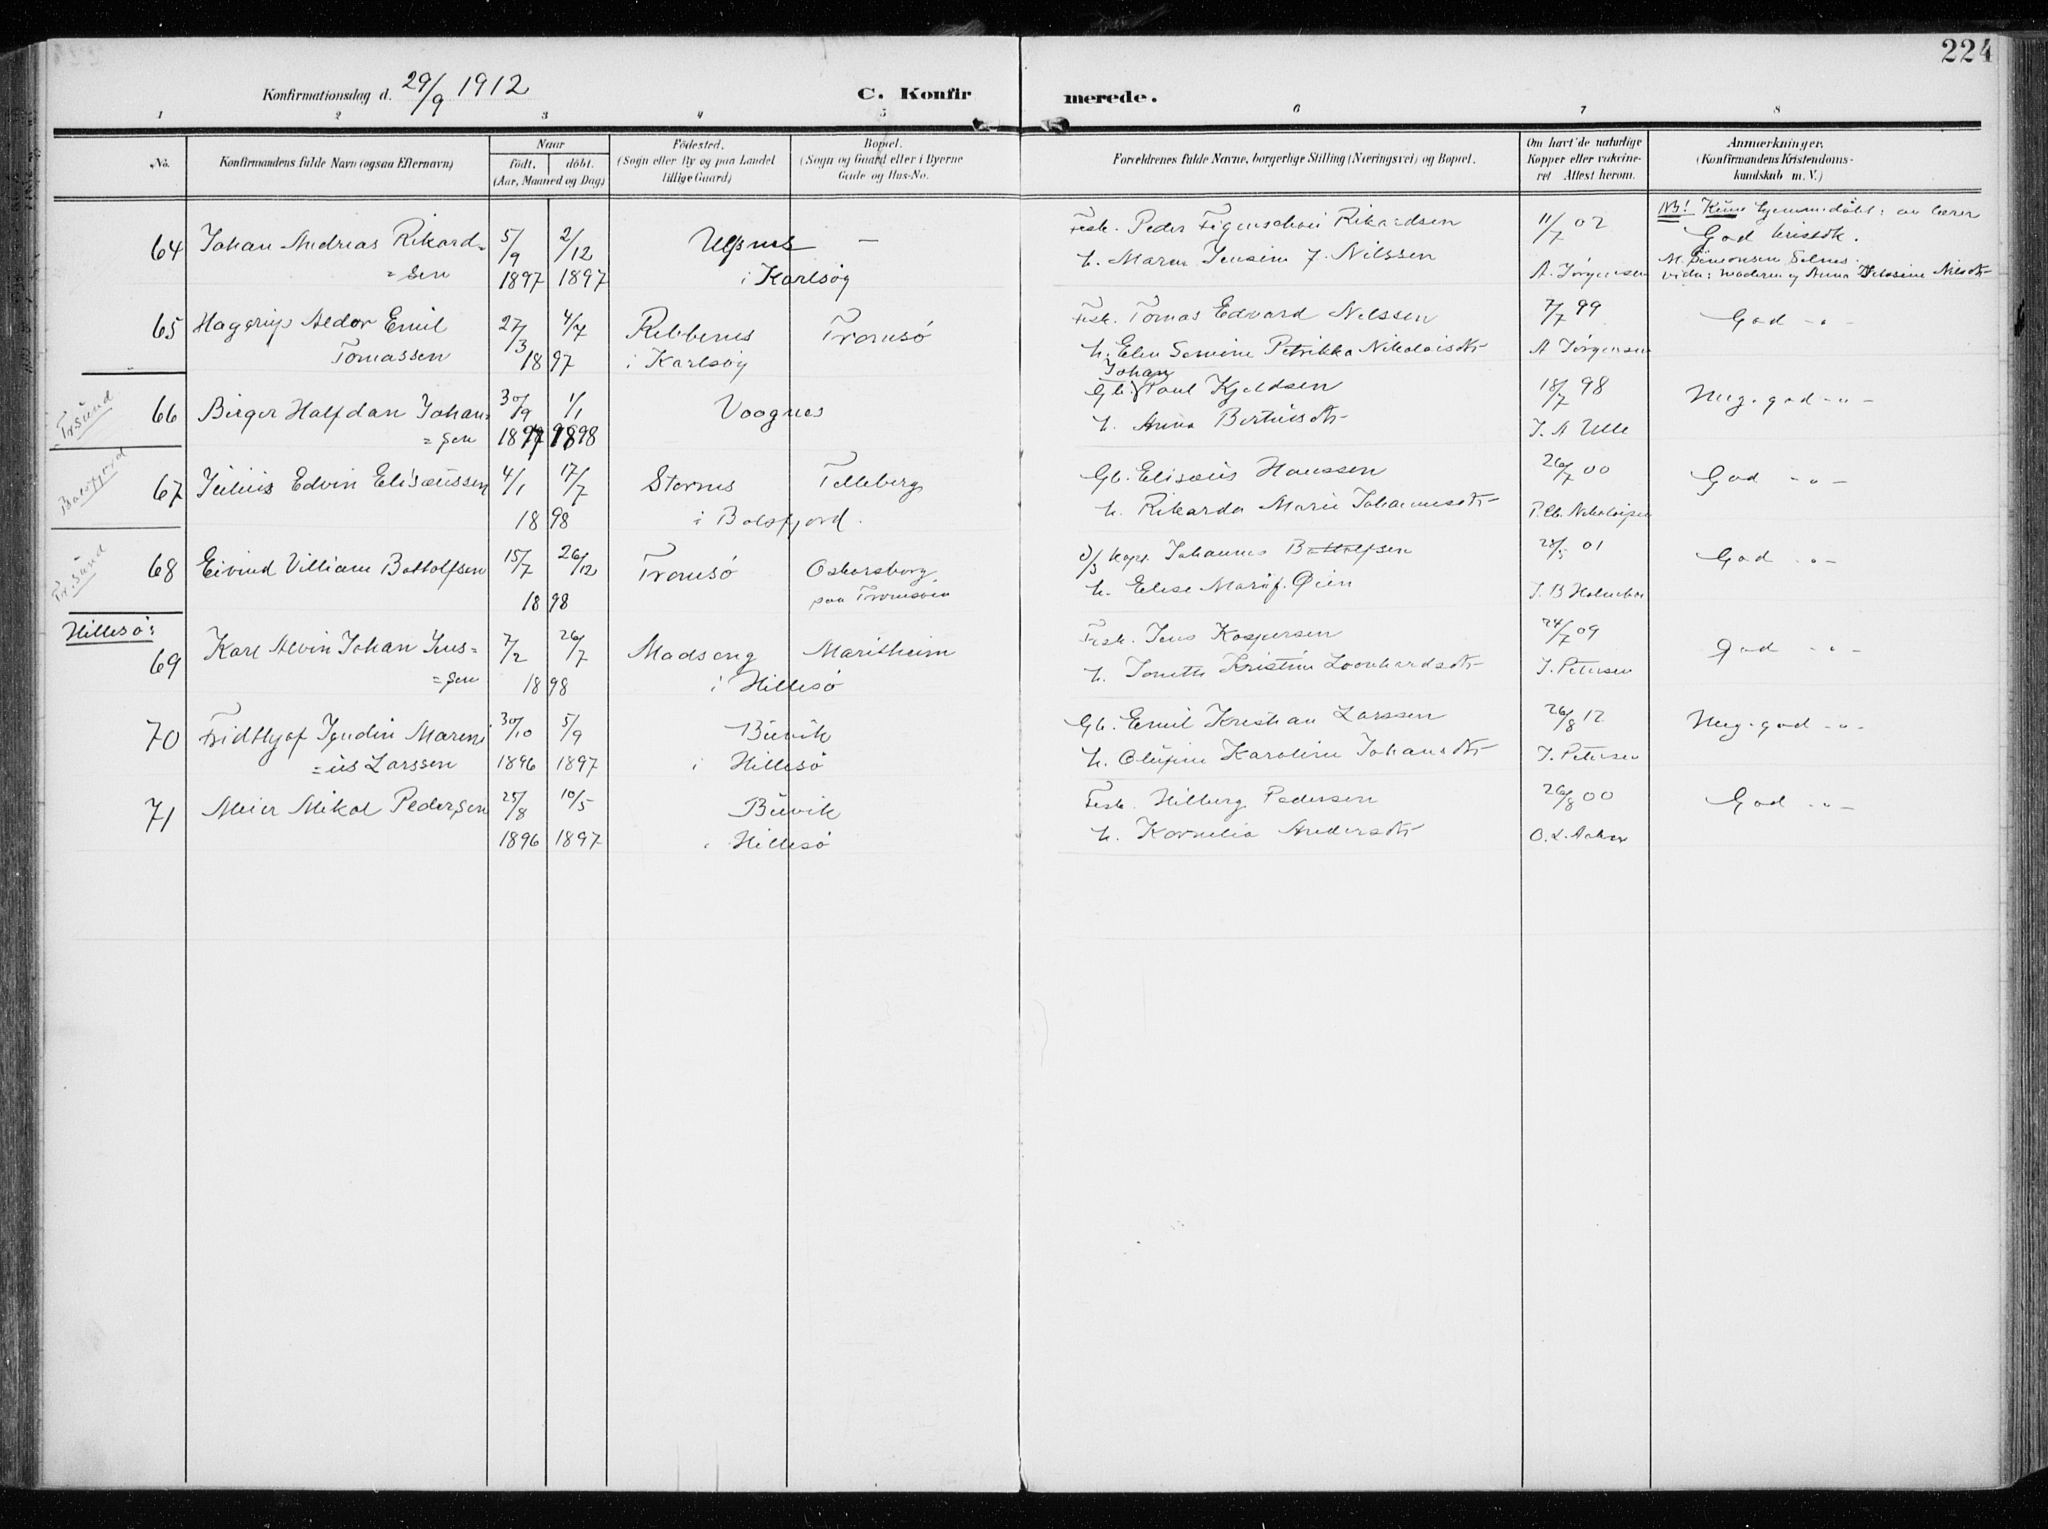 224
Konfirmationsdag d. 29/9 1912
C. Konfirmerede.
1 2 3 4 5 6 7 8
No.
Konfirmandens fulde Navn (ogsaa Efternavn)
Naar
født. døbt.
(Aar, Maaned og Dag)
Fødested.
(Sogn eller By og paa Landet
tillige Gaard)
Bopæl.
(Sogn og Gaard eller i Byerne
Gade og Hus-No.
Forældrenes fulde Navne, borgerlige Stilling (Næringsvei) og Bopæl.
Om havt de naturlige
Kopper eller vakcine-
ret Attest herom.
Anmærkninger.
(Konfirmandens Kristendoms-
kundskab m. V.)
64 Johan Andreas Rikard= 5/9 2/12 Ulfsnes — Fisk. Peder Figenschou Rikardsen 11/7 02 NB! Kun hjemmedøbt: av lærer
=sen 1897 1897 i Karlsøy h. Maren Jensine f. Nilssen A. Jørgensen God kristdk.
M. Simonsen Selnes.
vidn: moderen og Anna
65 Haggrup Aldor Emil 27/3 4/7 Ribbenes Tromsø Fisk. Tomas Edvard Nilssen 7/7 99 God -"-
Tomassen 1897 i Karlsøy h. Elen Semine Petrikka Nikolaisdtr A Jørgensen
Tr.sund
66 Birger Halfdan Johan= 30/9 1/1 Voognes Gb. Johan Paul Kjeldsen 18/7 98 Meg. god -"-
=sen 1897 1898 h. Anna Bertheusdtr J. A Ulle
Balsfjord
67 Julius Edvin Elisæussen 4/1 17/7 Stornes Telleberg Gb. Elisæus Hanssen 26/7 00 God -"-
1898 i Balsfjord. h. Rikarda Marie Johannesdtr P. Chr. Nikolaisen
Tr.sund
68 Eivind Villiam Bottolfsen 15/7 26/12 Tromsø Oskarsborg, d/s kapt. Johannes Bottolfsen 28/5 01 God -"-
1898 paa Tromsøen h. Elise Marie f. Øien J. B Holmboe
Hillesø:
69 Karl Alvin Johan Jens= 7/2 26/7 Madseng Maritheim Fisk. Jens Kaspersen 24/7 09 God -"-
=sen 1898 i Hillesø h. Jonette Kristine Leonhardsdtr J. Petersen
70 Fridthjof Ingudin Mareni 30/10 5/9 Buvik Gb. Emil Kristian Larssen 26/8 12 Meg. god -"-
=us Larssen 1896 1897 i Hillesø h. Olufine Karoline Johansdtr J. Petersen
71 Meier Mikal Pedersen 25/8 10/5 Buvik Fisk. Hilberg Pedersen 26/8 00 God -"-
1896 1897 i Hillesø h. Kornelia Andersdtr O. L. Aaker